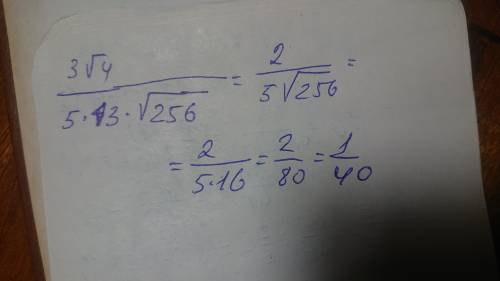 3√4 / 5·3·√256 = 2 / 5√256 =
= 2 / 5·16 = 2 / 80 = 1 / 40